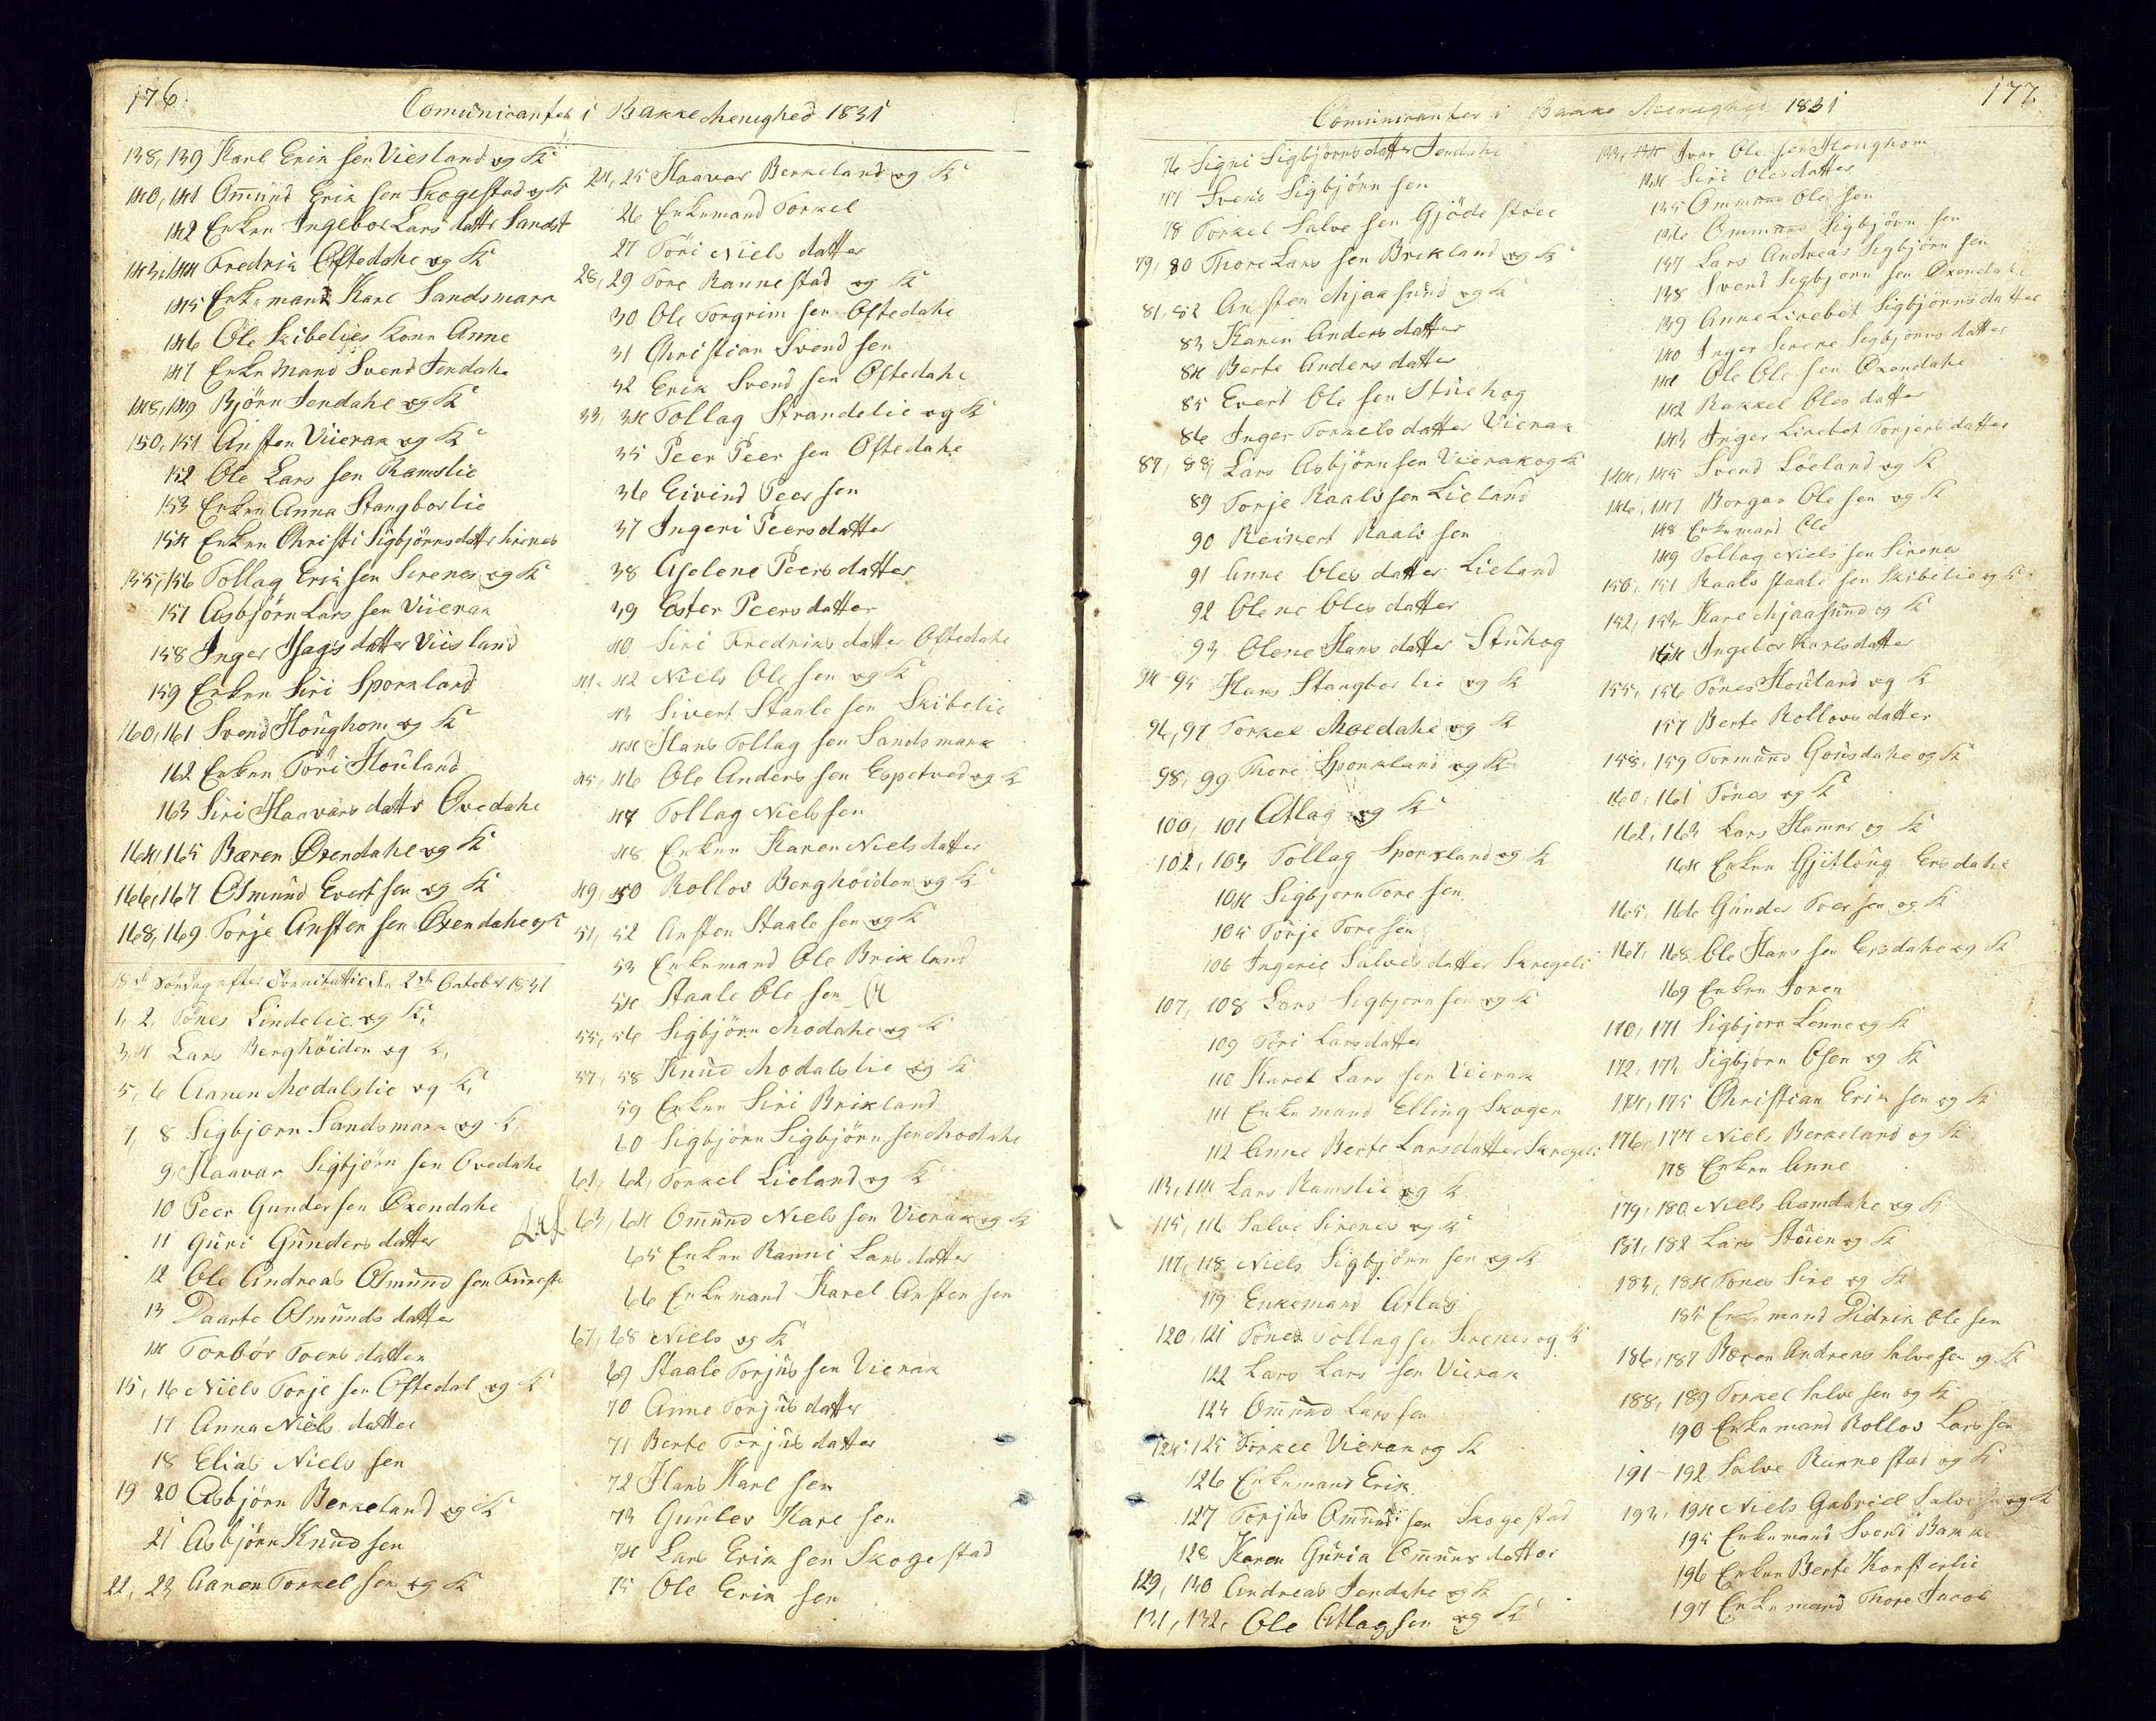 176.
Comunicanter i Bakke Menighed 1831
138, 139 Karl Erik sen Viesland og K
140, 141 Omund Erik sen Skogestad og K
142 Enken Ingebor Lars datter Sandst
143, 144 Fredrik Oftedahl og K
145 Enkemand Karl Sandsmark
146 Ole Skibelies Kone Anne
147 Enkemand Svend Jendahl
148, 149 Bjørn Jendahl og K
150, 151 Ansten Viierak og K
152 Ole Lars sen Ramslie
153 Enken Anna Stangborlie
154 Enken Christi Sigbjørnsdatter Sirenes
155, 156 Tollag Erik sen Sirenes og K
157 Asbjørn Lars sen Viierak
158 Inger Isags datter Viisland
159 Enken Siri Sporkland
160, 161 Svend Houghom og K
162 Enken Töri Houland
163 Siri Haavars datter Ovedahl
164, 165 Bæren Øxendahl og K
166, 167 Osmund Evert sen og K
168, 169 Torje Ansten sen Øxendahl og K
18de Søndag efter Trinitattic den 2den October 1831
1, 2, Tönes Lindelie og K,
3, 4 Lars Berghöiden og K,
5, 6 Aanen Modalslie og K,
7, 8 Sigbjørn Sandsmark og K,
9, Haavar Sigbjørn sen Ovedahl
10 Peer Gunder sen Øxendahl
11 Guri Gunders datter
12 Ole Andreas Osmund sen
13 Daarte Osmunds datter
14 Torbör Toers datter
15, 16 Niels Torje sen Oftedal og K
17 Anna Niels datter
18 Elias Niels sen
19 20 Asbjörn Berkeland og K
21 Asbjörn Knud sen
22, 23 Aanen Torkel sen og K
24, 25 Haavar Berkeland og K
26 Enkemand Torkel
27 Töri Niels datter
28, 29 Tore Rannestad og K
30 Ole Torgrim sen Oftedahl
31 Christian Svend sen
32 Erik Svend sen Oftedahl
33, 34 Tollag Strandelie og K
35 Peer Peer sen Oftedahl
36 Eivind Peer sen
37 Ingeri Peersdatter
38 Aselene Peers datter
39 Ester Peers datter
40 Siri Fredriks datter Oftedahl
41, 42 Niels Ole sen og K
43 Sivert Staale sen Skibelie
44 Hans Tollag sen Sandsmark
45, 46 Ole Anders sen Espetved og K
47 Tollag Niels sen
48 Enken Karen Niels datter
49, 50 Rollov Berghöiden og K
51, 52 Ansten Staale sen og K
53 Enkemand Ole Brikland
54 Staale Ole sen
55, 56 Sigbjörn Modahl og K
57, 58 Knud Modalslie og K
59 Enken Siri Brikland
60 Sigbjörn Sigbjörn sen Modahl
61, 62, Torkel Lieland og K
63, 64 Omund Niels sen Vierak og K
65 Enken Ranni Lars datter
66 Enkemand Karel Ansten sen
67, 68 Niels og K
69 Staale Torjus sen Vierak
70 Anne Torjus datter
71 Berte Torjus datter
72 Hans Karl sen
73 Gunlev Karl sen
74 Lars Erik sen Skogestad
75 Ole Erik sen
177
Comunicanter i Bakke Menighed 1831
76 Signi Sigbjörns datter Jendahl
77 Svend Sigbjörn sen
78 Torkel Salve sen
79, 80 Thore Lars sen Brikland og K
81, 82 Ansten Mjaasund og K
83 Karen Anders datter
84 Berte Anders datter
85 Evert Ole sen Stuehog
86 Inger Torkels datter Vierak
87, 88, Lars Asbjörn sen Vierak og K
89 Torje Raals sen Lieland
90 Reinert Raals sen
91 Anne Oles datter Lieland
92 Olene Oles datter
93 Olene Hans datter Stuhog
94-95 Hans Stangborlie og K
96, 97 Torkel Moedahl og K
98, 99 Thore Sporkland og K
100, 101 Atlag og K
102, 103 Tollag Sporkland og K
104 Sigbjorn Tore sen
105 Torje Tore sen
106 Ingerie Salves datter Skregeli
107, 108 Lars Sigbjorn sen og K
109 Töri Larsdatter
110 Karel Lars sen Vierak
111 Enkemand Elling Skogen
112 Anne Berte Larsdatter Skregeli
113, 114 Lars Ramslie og K
115, 116 Salve Sirenes og K
117, 118 Niels Sigbjörn sen og K
119 Enkemand Atlag
120, 121 Tönes Tollag sen Sirenes og K
122 Lars Lars sen Vierak
123 Omund Lars sen
124, 125 Torkel Vierak og K
126 Enkemand Erik
127 Torjus Omund sen Skogestad
128 Karen Guria Omunds datter
129, 130 Andreas Jendahl og K
131, 132, Ole Atlag sen og K
133, 134 Iver Ole sen Houghom
134 Siri Olesdatter
135 Ommund Ole sen
136 Ommund Sigbjörn sen
137 Lars Andreas Sigbjörn sen
138 Svend Sigbjorn sen Øxendahl
139 Anne Lisebet Sigbjörnsdatter
140 Inger Serene Sigbjörns datter
141 Ole Ole sen Øxendahl
142 Rakkel Oles datter
143 Inger Lisebet Torjers datter
144, 145 Svend Löeland og K
146, 147 Borgar Ole sen og K
148 Enkemand Ole
149 Tollag Niels sen Sirenes
150, 151 Raals Staale sen Skibelie og K
152, 153 Karl Mjaasund og K
154 Ingebor Karlsdatter
155, 156 Tönes Houland og K
157 Berte Rollovs datter
158, 159 Tormund Gousdahl og K
160, 161 Tönes og K
162, 163 Lars Hamar og K
164 Enken Gjitlöug Ersdahl
165, 166 Gunder Toer sen og K
167, 168 Ole Hans sen Ersdahl og K
169 Enken Joren
170, 171 Sigbjorn Lenne og K
172, 173 Sigbjörn Osen og K
174, 175 Christian Erik sen og K
176, 177 Niels Berkeland og K
178 Enken Anne
179, 180 Niels Aamdahl og K
181, 182 Lars Stuen og K
183, 184 Tones Sire og K
185 Enkemand Didrik Ole sen
186, 187 Bæren Andreas Salvesen og K
188, 189 Torkel Salve sen og K
190 Enkemand Rollov Lars sen
191-192 Salve Runnestad og K
193, 194 Niels Gabriel Salvesen og K
195 Enkemand Svend Bakke
196 Enken Berte
197 Enkemand Thore Jacob